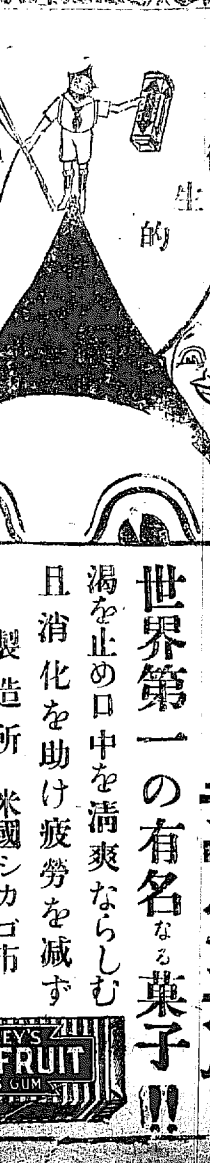 生
的
世界第一の有名なる菓子!!
渇を止め口中を清爽ならしむ
且消化を助け疲労を減ず
製造所 米國シカゴ市
EY'S
FRUIT
GUM